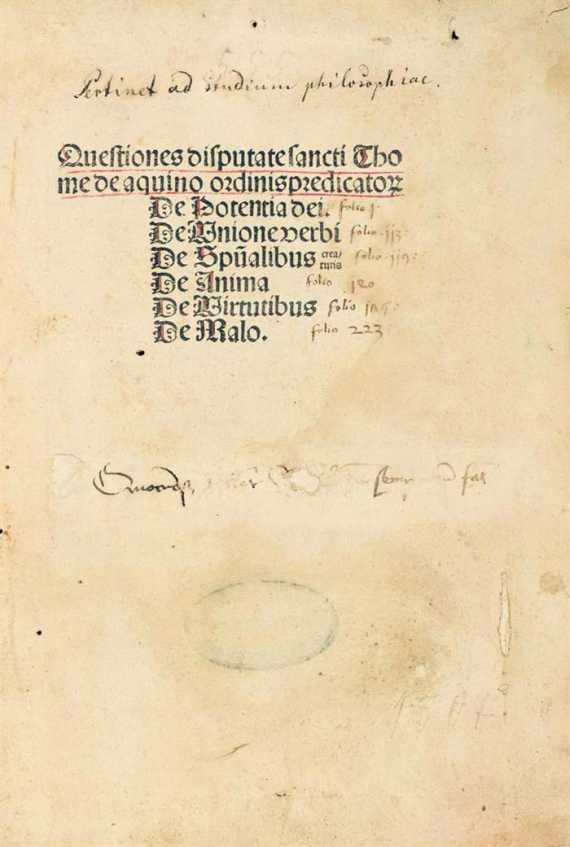 Pertinet ad studium philosophiae.
Questiones disputate sancti Tho
me de aquino ordinis predicatoꝝ
De Potentia dei. folio 1
De Unione verbi folio 113
De Spũalibus creaturis folio 119
De Anima folio 120
De Virtutibus folio
De Malo. folio 223